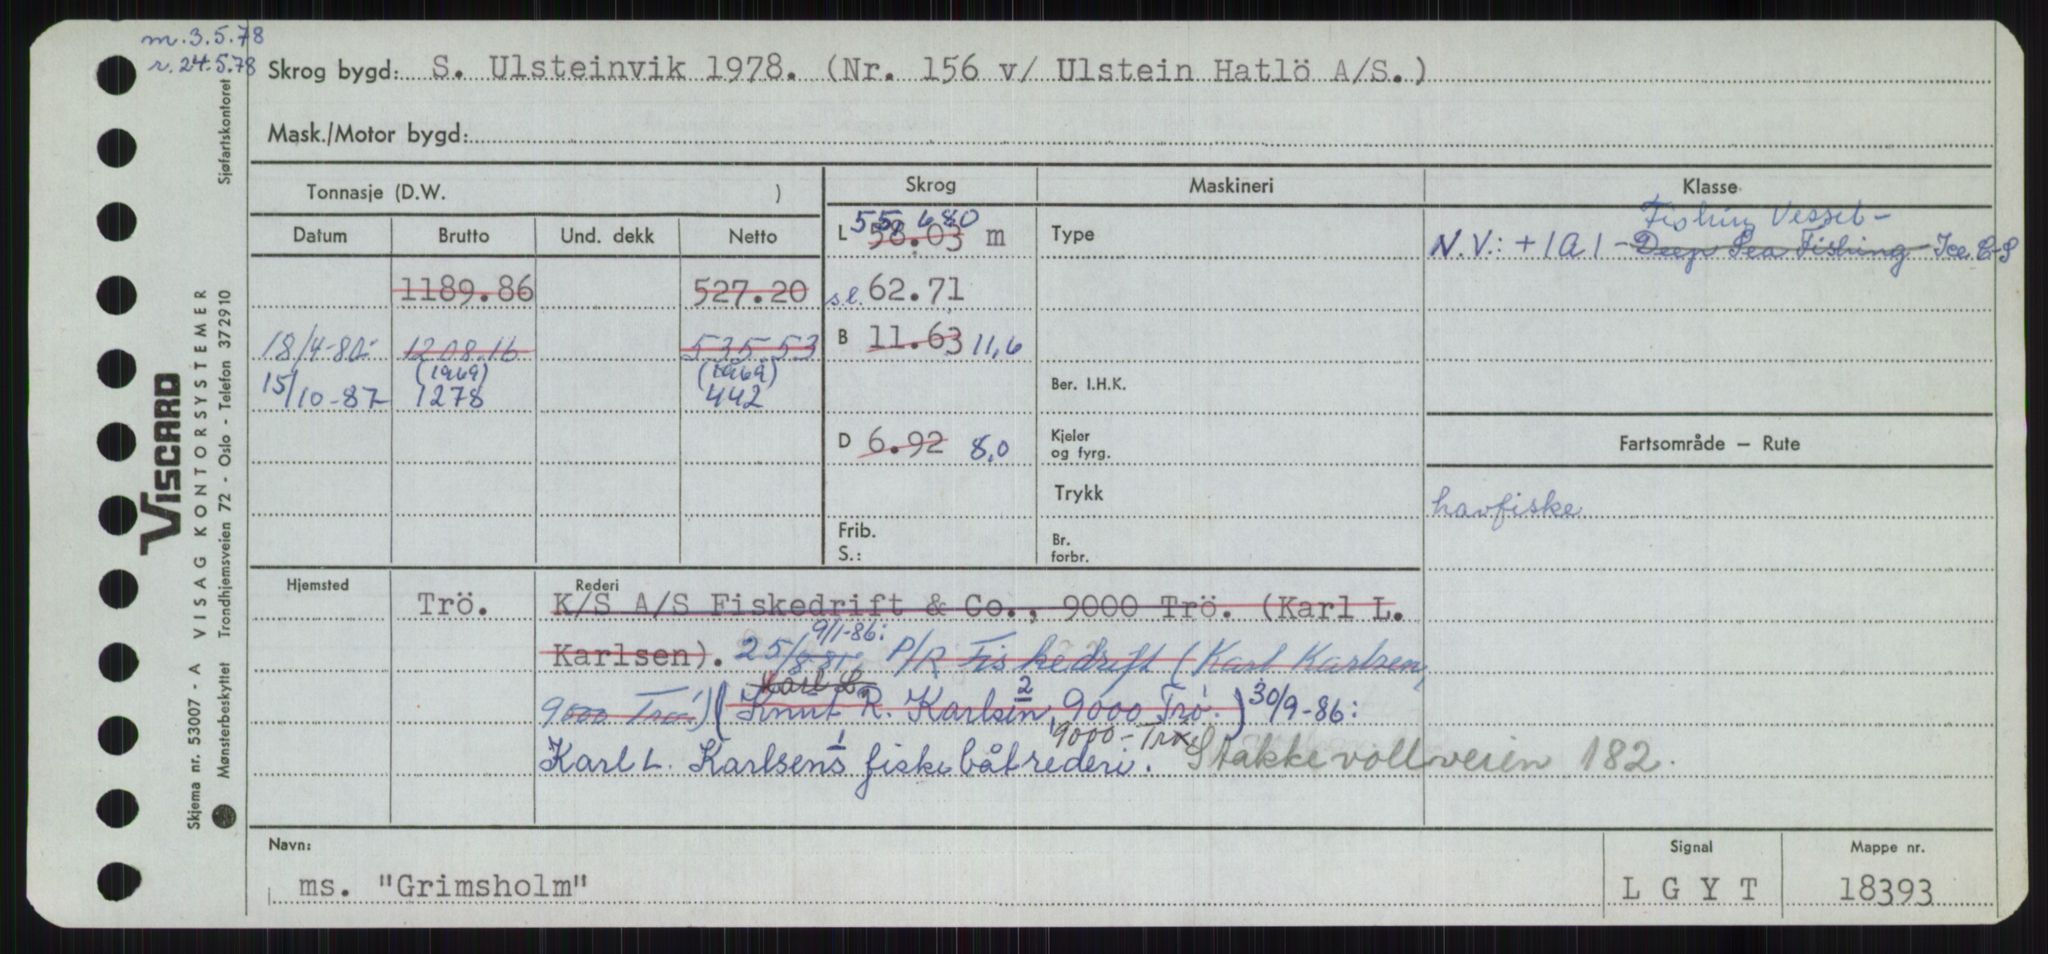 m. 3.5.78
r. 24.5.78
Skrog bygd: S. Ulsteinvik 1978. (Nr. 156 v/ Ulstein Hatlö A/S.)
Mask./Motor bygd:
Tonnasje (D.W. )
Skrog
Maskineri
Klasse
Datum
Brutto
Und. dekk
Netto
55,680
L 58.03 m
Type
Fishing Vessel -
N.V.: + 1A1 - Deep Sea Fishing - Ice C-S
1189.86
527.20
s.l. 62.71
18/4-80:
1208.16
535.53
B 11.63 11,6
(1969)
(1969)
15/10-87
1278
442
Ber. I.H.K.
D 6.92 8,0
Kjeler
og fyrg.
Fartsområde – Rute
Trykk
havfiske
Frib.
S.:
Br.
forbr.
Hjemsted
Trö.
Rederi
K/S A/S Fiskedrift & Co., 9000 Trö. (Karl L.
9/1-86:
Karlsen). 25/8 85, P/R Fiskedrift (Karl Karlsen,
Karl L. 2
9000 Trö) (Knut R. Karlsen, 9000 Trö.) 30/9-86:
1 9000 - Trö.
Karl L. Karlsens fiskebåtrederi. Stakkevollveien 182.
Navn:
ms. "Grimsholm"
Signal
L G Y T
Mappe nr.
18393
VISCARD
Skjema nr. 53007 - A VISAG KONTORSYSTEMER
Mønsterbeskyttet Trondhjemsveien 72 - Oslo - Telefon 372910
Sjøfartskontoret